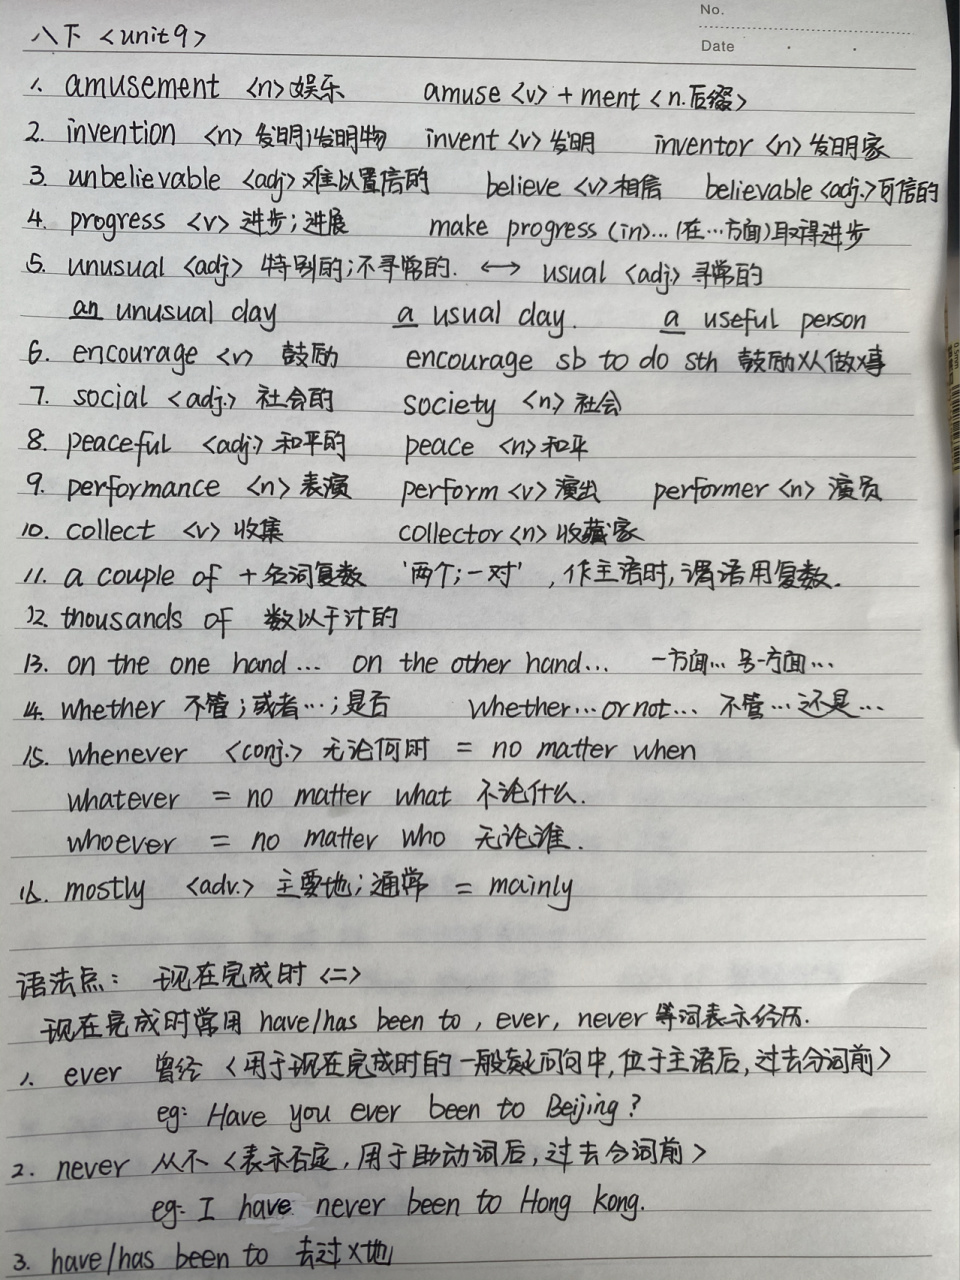 No.
Date
八下 <unit 9>
1. amusement <n> 娱乐 amuse <v> + ment <n.后缀>
2. invention <n> 发明;发明物 invent <v> 发明 inventor <n> 发明家
3. unbelievable <adj> 难以置信的 believe <v> 相信 believable <adj.> 可信的
4. progress <v> 进步;进展 make progress (in)... (在…方面)取得进步
5. unusual <adj> 特别的;不寻常的. ↔ usual <adj> 寻常的
an unusual day a usual day. a useful person
6. encourage <v> 鼓励 encourage sb to do sth 鼓励某人做某事
7. social <adj.> 社会的 society <n> 社会
8. peaceful <adj> 和平的 peace <n> 和平
9. performance <n> 表演 perform <v> 演出 performer <n> 演员
10. collect <v> 收集 collector <n> 收藏家
11. a couple of + 名词复数 '两个;一对', 作主语时,谓语用复数.
12. thousands of 数以千计的
13. on the one hand... on the other hand... 一方面… 另一方面…
14. whether 不管;或者…;是否 whether...or not... 不管…还是…
15. whenever <conj.> 无论何时 = no matter when
whatever = no matter what 不论什么.
whoever = no matter who 无论谁.
16. mostly <adv.> 主要地;通常 = mainly
语法点: 现在完成时<二>
现在完成时常用 have/has been to, ever, never 等词表示经历.
1. ever 曾经 <用于现在完成时的一般疑问句中,位于主语后,过去分词前>
eg: Have you ever been to Beijing?
2. never 从不 <表示否定,用于助动词后,过去分词前>
eg: I have never been to Hong Kong.
3. have/has been to 去过X地